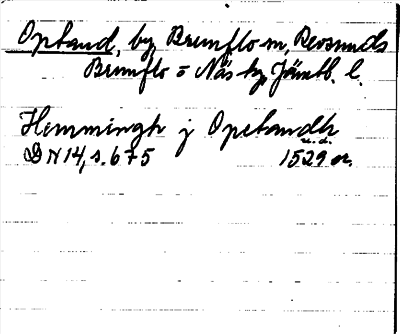 Optand, by, Brunflo sn, Revsunds
Brunflo o Näs hg, Jämtl. l.
Hemmingh j Opetandh
DN 14, s. 675 u.d. 1529 or.